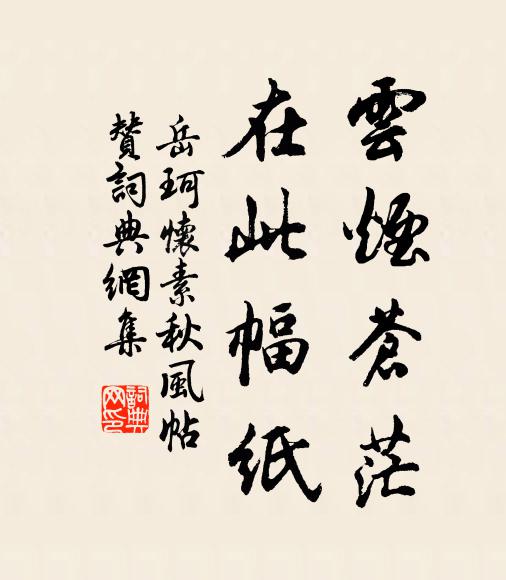 雲煙蒼茫
在此幅紙
岳珂懷素秋風帖
贊詞典網集
詞典
网印